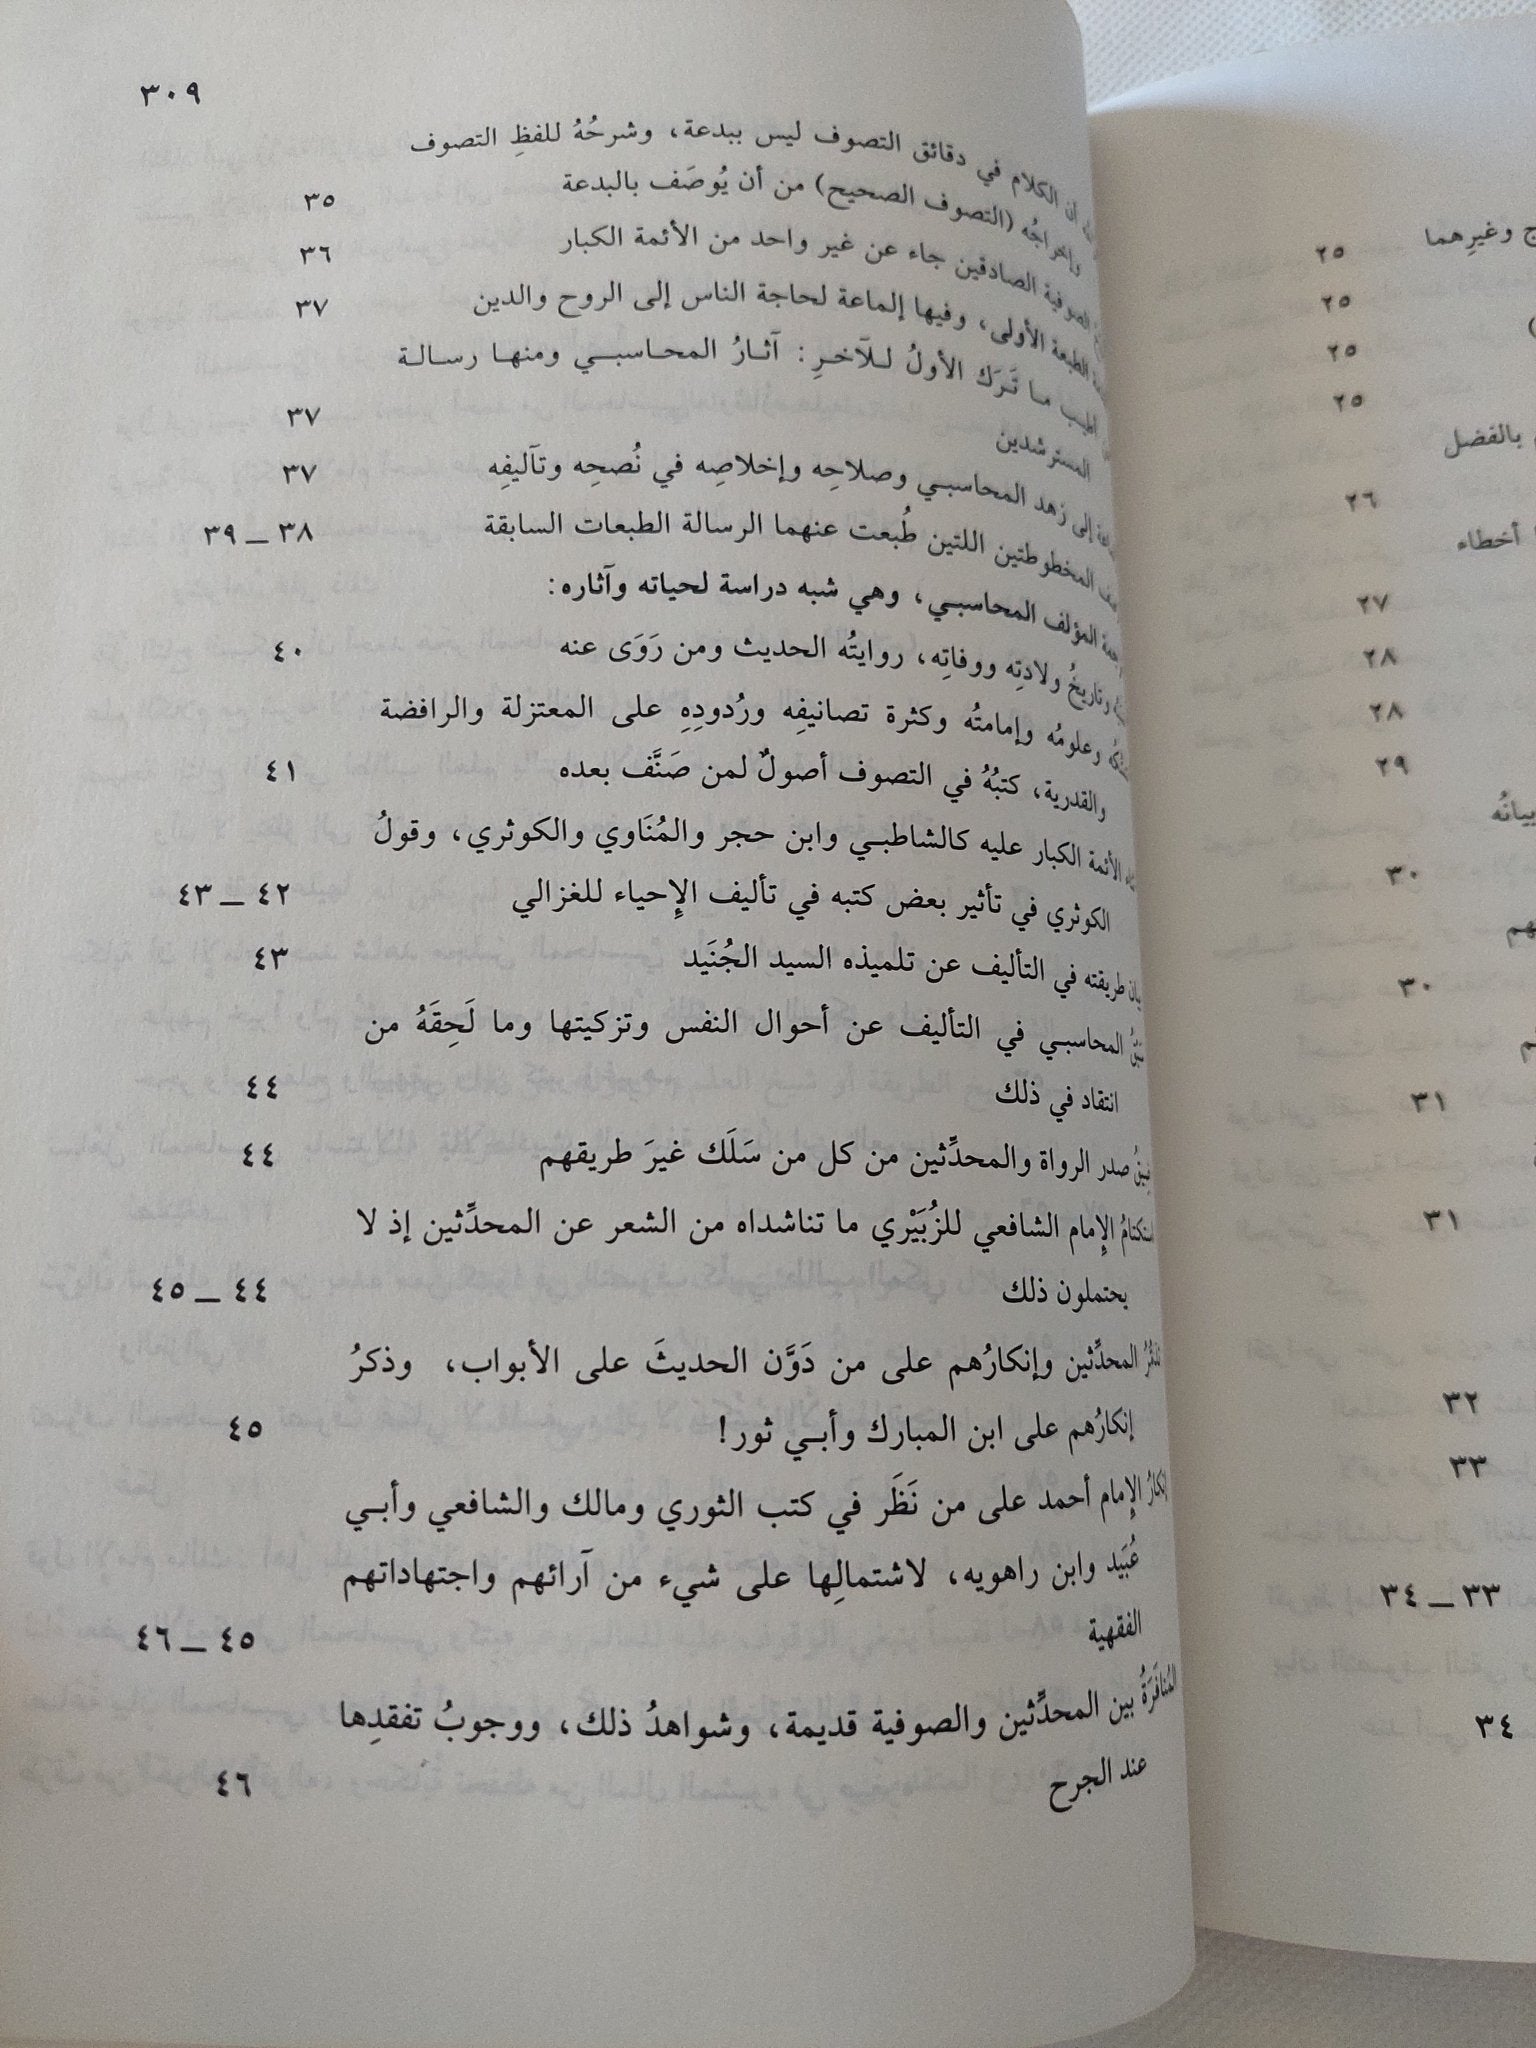 ٣٠٩
أن الكلام في دقائق التصوف ليس ببدعة، وشرحُهُ للفظِ التصوف
وإخراجُه (التصوف الصحيح) من أن يُوصَف بالبدعة ٣٥
الصوفية الصادقين جاء عن غير واحد من الأئمة الكبار ٣٦
الطبعة الأولى، وفيها إلماعة لحاجة الناس إلى الروح والدين ٣٧
أطيب ما تَرَك الأولُ للآخرِ: آثارُ المحاسبي ومنها رسالة
المسترشدين ٣٧
إلى زهد المحاسبي وصلاحِه وإخلاصِه في نُصحِه وتآليفِه ٣٧
المخطوطتين اللتين طُبعت عنهما الرسالة الطبعات السابقة ٣٨ ــ ٣٩
المؤلف المحاسبي، وهي شبه دراسة لحياته وآثاره:
وتاريخُ ولادتِه ووفاتِه، روايتُه الحديث ومن رَوَى عنه ٤٠
وعلومُه وإمامتُه وكثرة تصانيفِه ورُدودِهِ على المعتزلة والرافضة
والقدرية، كتبُهُ في التصوف أصولٌ لمن صَنَّف بعده ٤١
الأئمة الكبار عليه كالشاطبي وابن حجر والمُنَاوي والكوثري، وقولُ
الكوثري في تأثير بعض كتبه في تأليف الإحياء للغزالي ٤٢ ــ ٤٣
بيان طريقته في التأليف عن تلميذه السيد الجُنَيد ٤٣
سَبْقُ المحاسبي في التأليف عن أحوال النفس وتزكيتها وما لَحِقَهُ من
انتقاد في ذلك ٤٤
ضِيقُ صدر الرواة والمحدِّثين من كل من سَلَك غيرَ طريقهم ٤٤
استكتامُ الإمام الشافعي للزُبَيْري ما تناشداه من الشعر عن المحدِّثين إذ لا
يحتملون ذلك ٤٤ ــ ٤٥
المحدِّثين وإنكارُهم على من دَوَّن الحديثَ على الأبواب، وذكرُ
إنكارُهم على ابن المبارك وأبي ثور! ٤٥
إنكارُ الإمام أحمد على من نَظَر في كتب الثوري ومالك والشافعي وأبي
عُبَيد وابن راهويه، لاشتمالِها على شيء من آرائهم واجتهاداتهم
الفقهية ٤٥ ــ ٤٦
المُنافَرَةُ بين المحدِّثين والصوفية قديمة، وشواهدُ ذلك، ووجوبُ تفقدِها
عند الجرح ٤٦
وغيرِهما ٢٥
٢٥
٢٥
٢٥
بالفضل
٢٦
أخطاء
٢٧
٢٨
٢٨
٢٩
٣٠
٣٠
٣١
٣١
٣٢
٣٣
٣٣ ــ ٣٤
٣٤